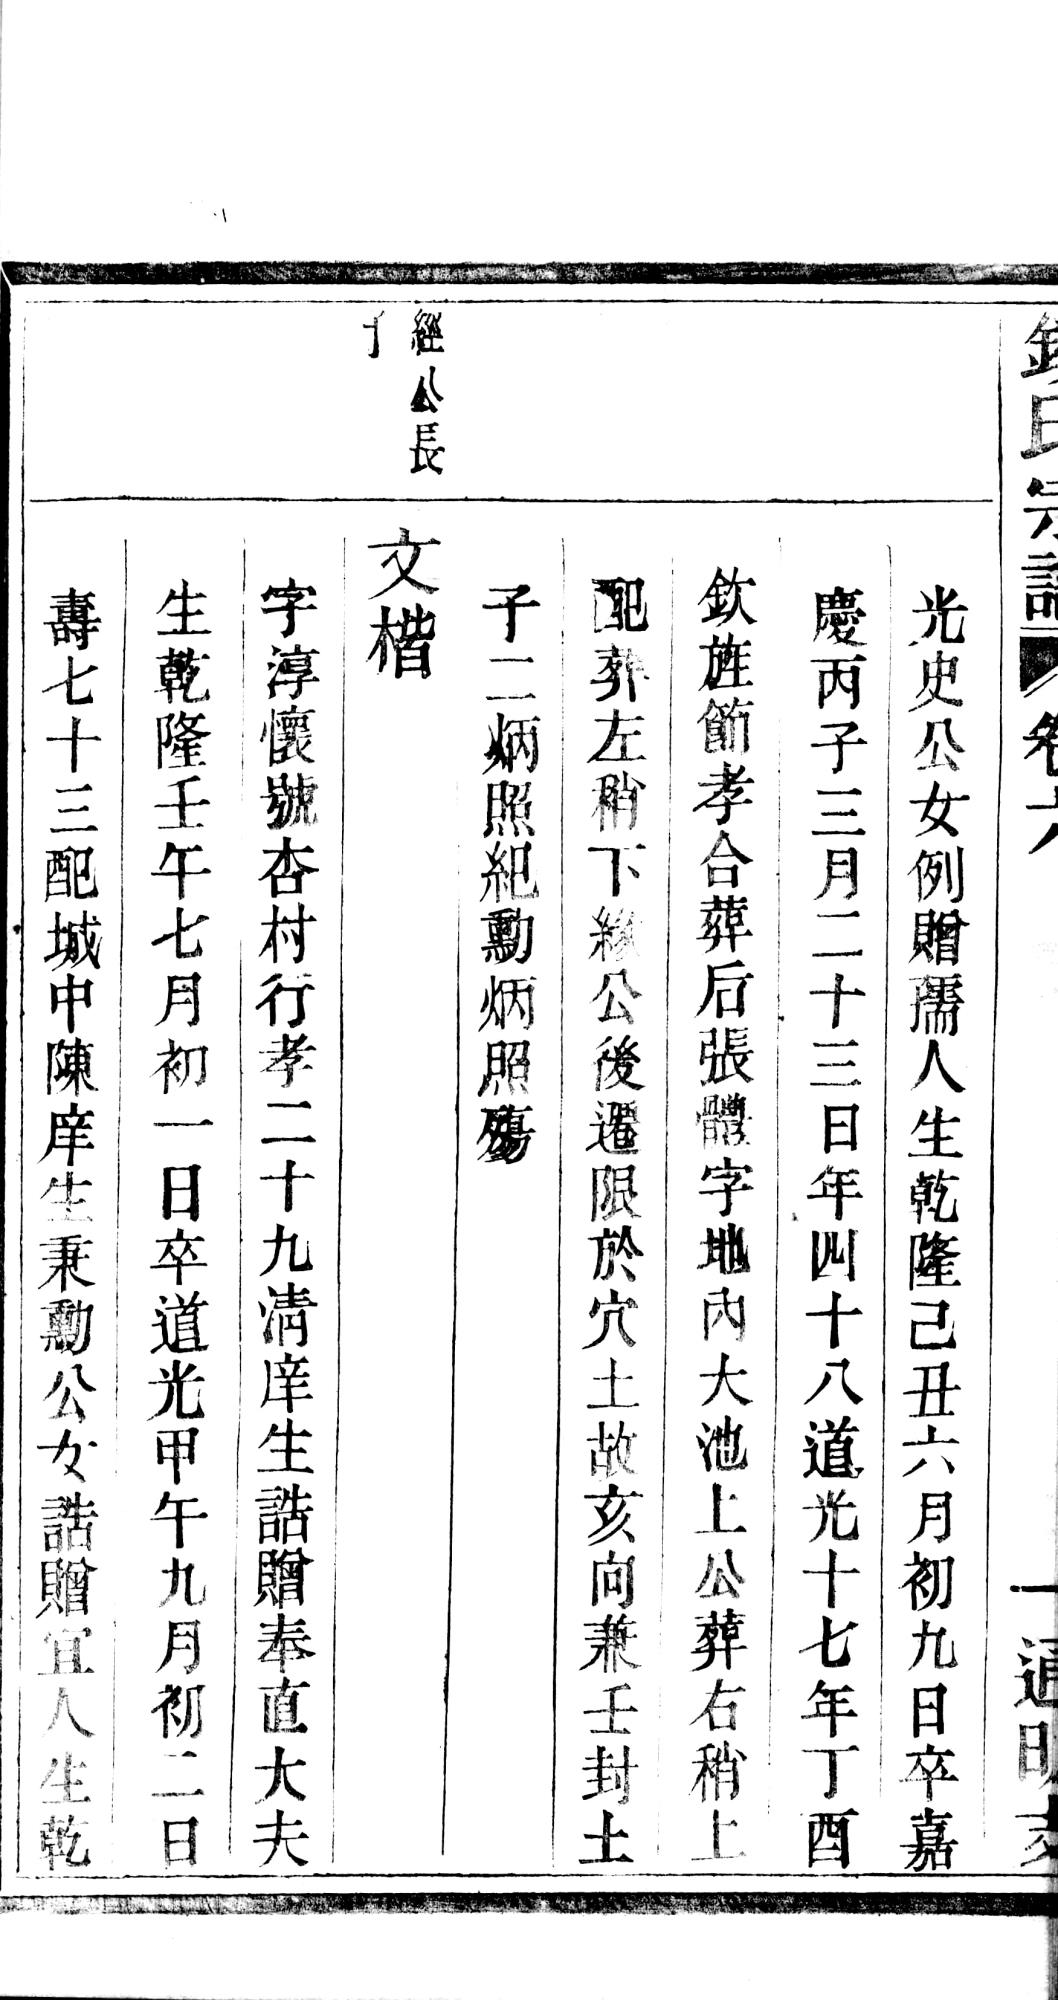 氏宗譜 卷六 一 通明
光史公女例贈孺人生乾隆己丑六月初九日卒嘉
慶丙子三月二十三日年四十八道光十七年丁酉
欽旌節孝合葬后張體字地內大池上公葬右稍上
配葬左稍下緣公後遷限於穴土故亥向兼壬封土
子二炳照紀勳炳照殤
經公長
文楷
字淳懷號杏村行孝二十九清庠生誥贈奉直大夫
生乾隆壬午七月初一日卒道光甲午九月初二日
壽七十三配城中陳庠生秉勳公女誥贈宜人生乾